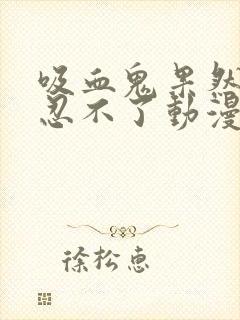 吸血鬼果然
忍不了動漫
徐松惠